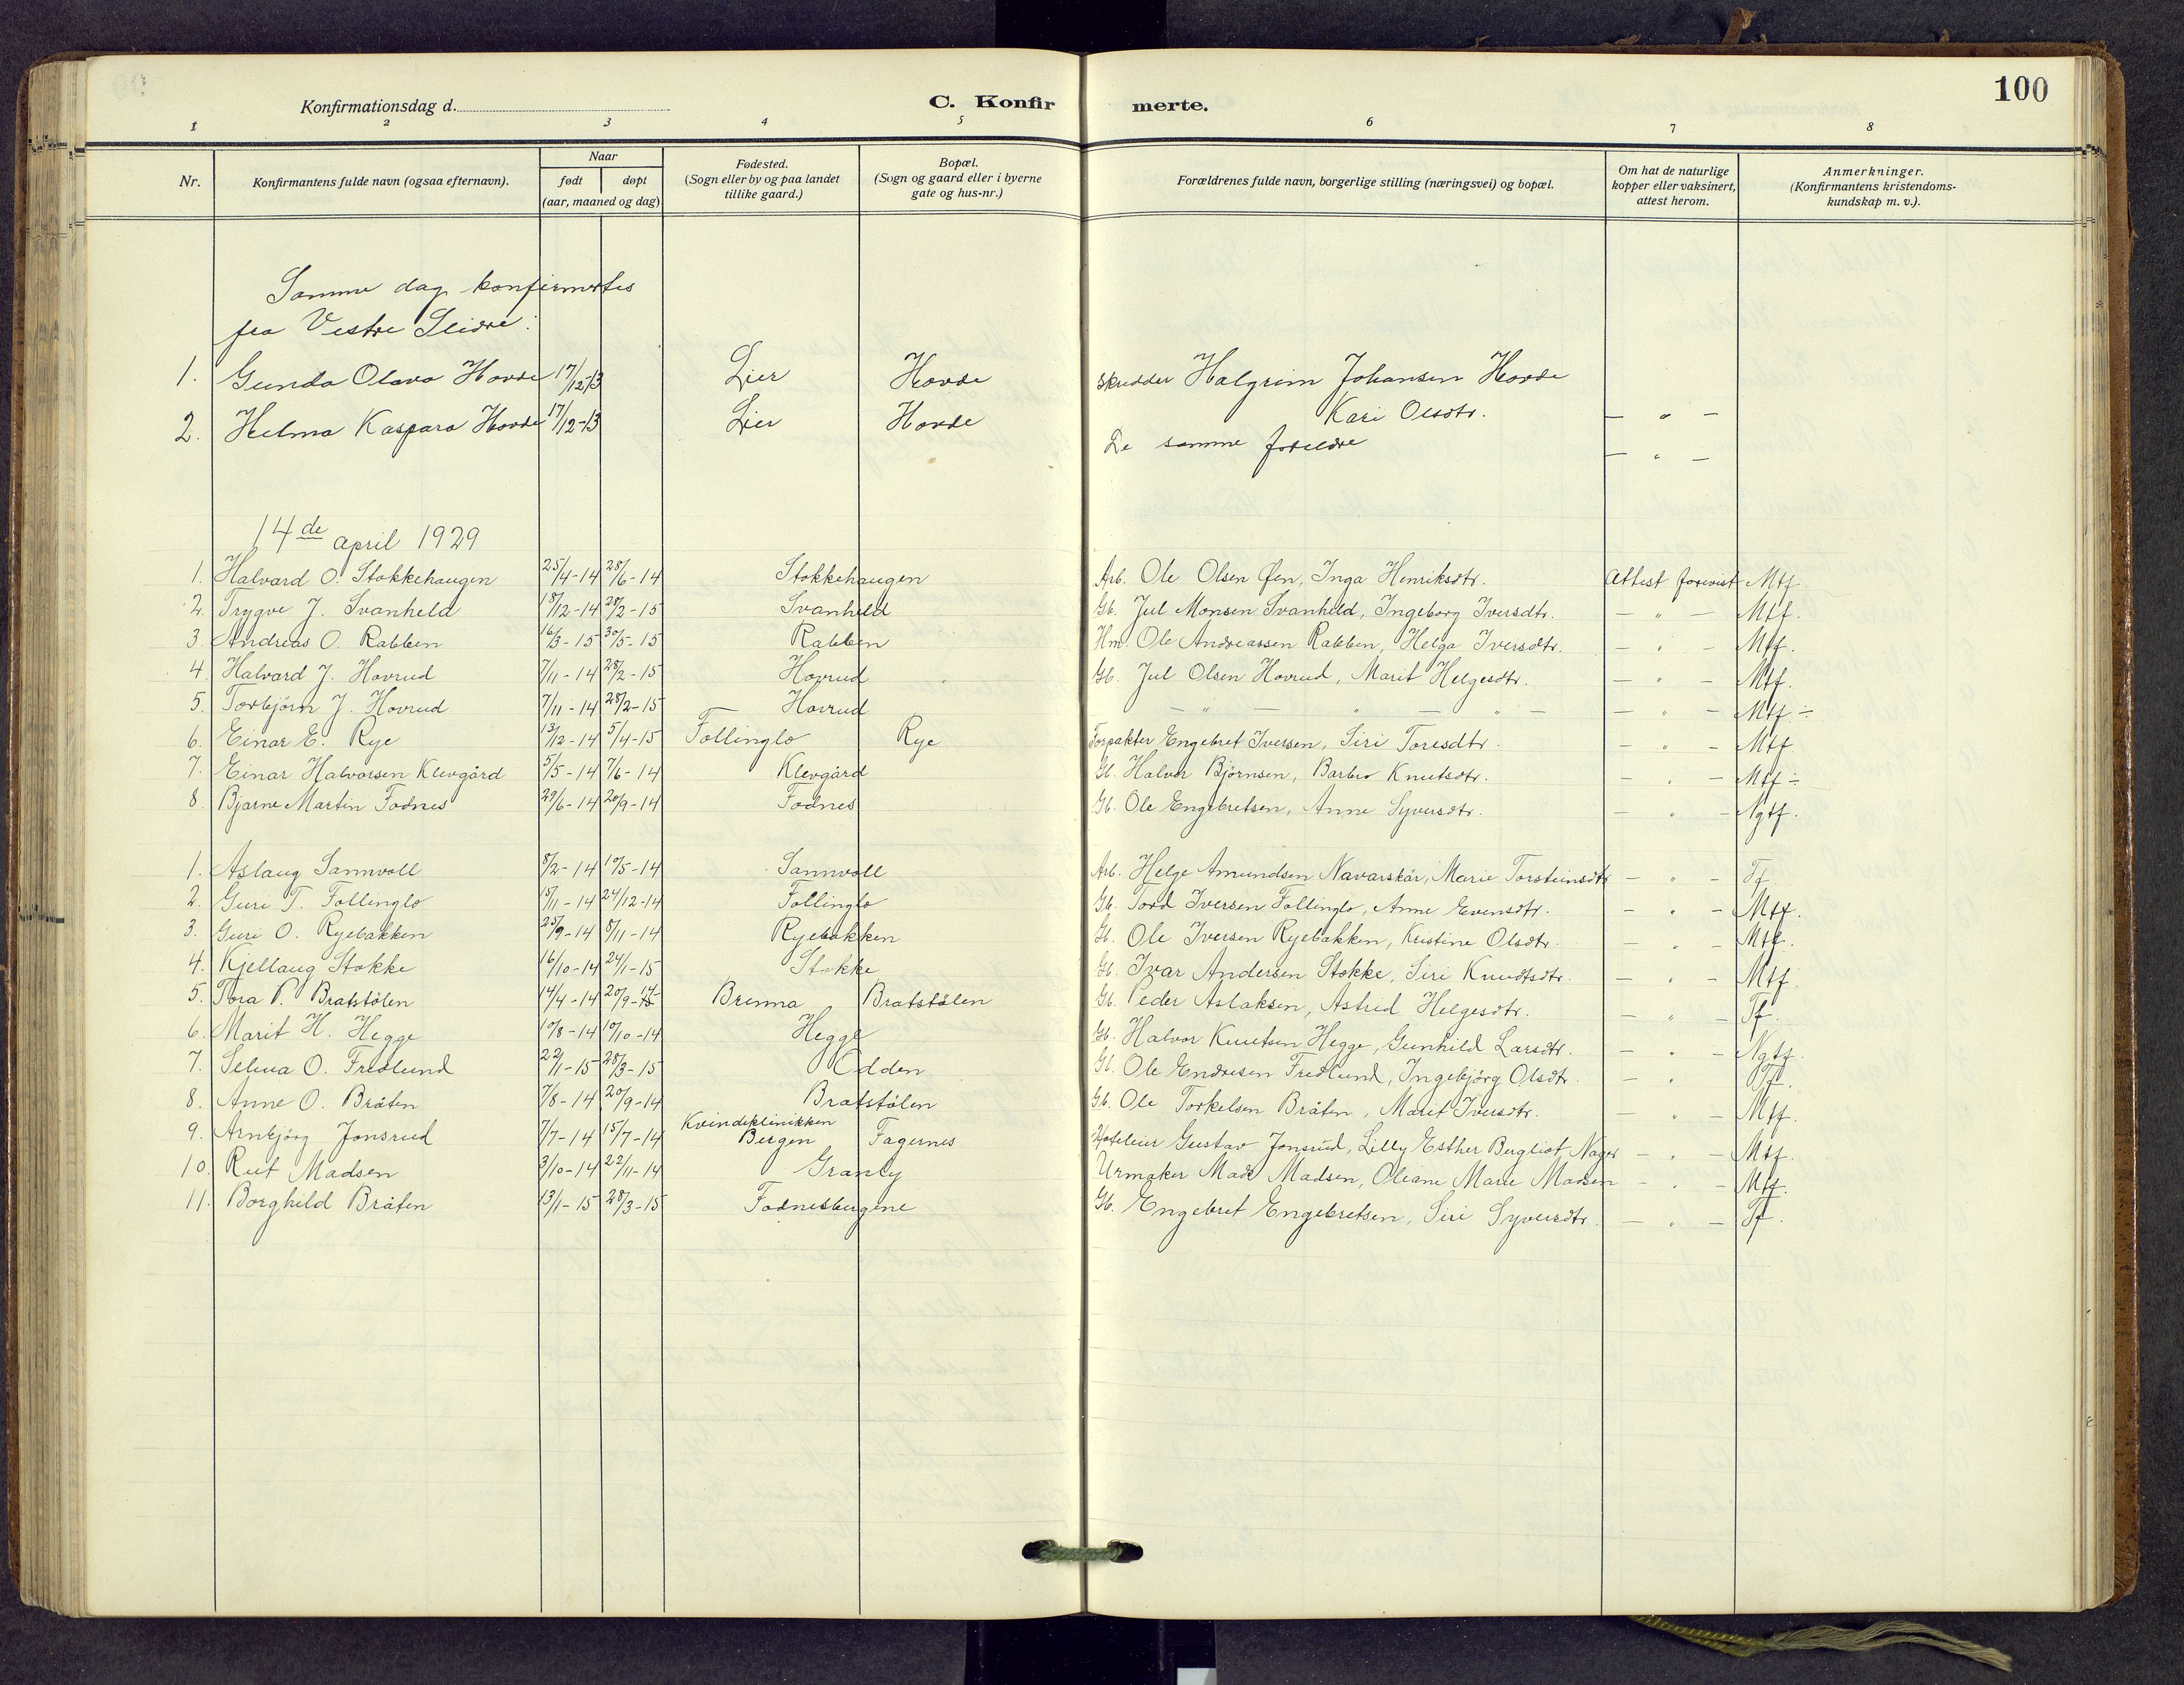 Konfirmationsdag d. C. Konfirmerte. 100
1 2 3 4 5 6 7 8
Nr. Konfirmantens fulde navn (ogsaa efternavn). Naar født døpt (aar, maaned og dag) Fødested. (Sogn eller by og paa landet tillike gaard.) Bopæl. (Sogn og gaard eller i byerne gate og hus-nr.) Forældrenes fulde navn, borgerlige stilling (næringsvei) og bopæl. Om hat de naturlige kopper eller vaksinert, attest herom. Anmerkninger. (Konfirmantens kristendoms-kundskap m. v.).
Samme dag konfirmertes
fra Vestre Slidre:
1. Gunda Olava Hovde 17/12-13 Lier Hovde Skrædder Halgrim Johansen Hovde
Kari Olsdtr. — " —
2. Helma Kaspara Hovde 17/12-13 Lier Hovde De samme foreldre — " —
14de april 1929
1. Halvard O. Stokkehaugen 25/4-14 28/6-14 Stokkehaugen Arb. Ole Olsen Øen, Inga Henriksdtr. Attest forevist Mtf.
2. Trygve J. Svanheld 18/12-14 28/2-15 Svanheld Gb. Jul Monsen Svanheld, Ingeborg Iversdtr. — " — Mtf.
3 Andreas O. Rabben 16/3-15 30/5-15 Rabben Hm. Ole Andreassen Rabben, Helga Iversdtr. — " — Mtf.
4. Halvard J. Hovrud 7/11-14 28/2-15 Hovrud Gb. Jul Olsen Hovrud, Marit Helgesdtr. — " — Mtf.
5. Torbjörn J. Hovrud 7/11-14 28/2-15 Hovrud — " — " — " — — " — Mtf ÷
6. Einar E. Rye 13/12-14 5/4-15 Follinglo Rye Forpakter Engebret Iversen, Siri Toresdtr. — " — Mtf
7. Einar Halvorsen Klevgård 5/5-14 7/6-14 Klevgård Gb. Halvor Björnsen, Barbro Knutsdtr. — " — Mtf ÷
8. Bjarne Martin Fodnes 29/6-14 20/9-14 Fodnes Gb. Ole Engebretsen, Anne Syversdtr. — " — Ngtf.
1. Aslaug Sannvoll 8/2-14 10/5-14 Sannvoll Arb. Helge Amundsen Navarskår, Marie Torsteinsdtr — " — Tf
2. Guri T. Follinglo 15/11-14 24/12-14 Follinglo Gb. Tord Iversen Follinglo, Anne Evensdtr. — " — Mtf.
3. Guri O. Ryebakken 25/9-14 8/11-14 Ryebakken Gb. Ole Iversen Ryebakken, Kristine Olsdtr. — " — Mtf.
4. Kjellaug Stokke 16/10-14 24/1-15 Stokke Gb. Ivar Andersen Stokke, Siri Knudtsdtr. — " — Mtf.
5. Tora P. Bratstölen 14/4-14 20/9-14 Brenna Bratstölen Gb. Peder Aslaksen, Astrid Helgesdtr. — " — Tf.
6. Marit H. Hegge 10/8-14 10/10-14 Hegge Gb. Halvor Knutsen Hegge, Gunhild Larsdtr. — " — Ngtf.
7. Selma O. Fredlund 22/1-15 28/3-15 Odden Gb. Ole Endresen Fredlund, Ingebjörg Olsdtr. — " Tf.
8. Anne O. Bråten 7/8-14 20/9-14 Bratstölen Gb. Ole Torkelsen Bråten, Marit Iversdtr. — " — Mtf.
9. Arnbjörg Jonsrud 7/7-14 15/7-14 Kvindeklinikken Bergen Fagernes Hoteleier Gustav Jonsrud, Lilly Esther Bergliot Nager — " — Mtf.
10. Rut Madsen 3/10-14 22/11-14 Granly Urmaker Mads Madsen, Oleane Marie Madsen — " — Mtf.
11. Borghild Bråten 13/1-15 28/3-15 Fodnesbergene Gb. Engebret Engebretsen, Siri Syversdtr. — " — Tf.